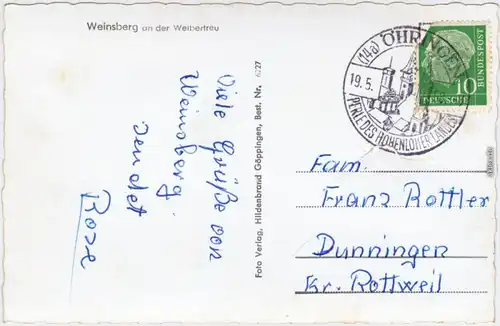 Weinsberg an der Weibertreu
Viele Grüße von
Weinsberg.
sendet
Rose
Foto Verlag, Hildenbrand Göppingen, Best. Nr. 6227
(14a) ÖHRINGEN
19.5.
PERLE DES HOHENLOHER LANDES
10
DEUTSCHE
BUNDESPOST
Fam.
Franz Rottler
Dunningen
Kr. Rottweil